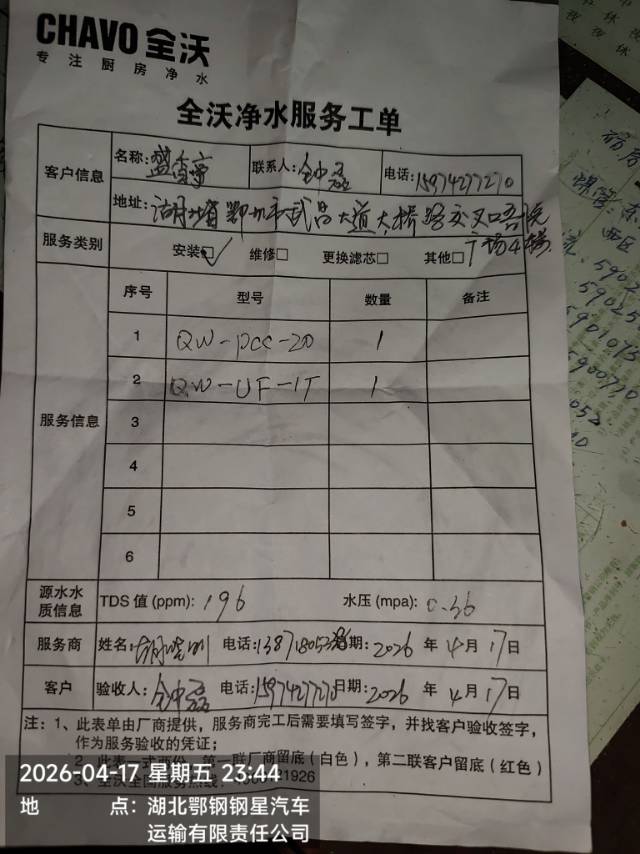 CHAVO 全沃
专注厨房净水
全沃净水服务工单
客户信息 名称: 盛香亭 联系人: 电话: 15974277270
地址: 湖北省鄂州市武昌大道大桥路交叉口吾悦
广场4楼
服务类别 安装☑ 维修□ 更换滤芯□ 其他□
服务信息
序号 型号 数量 备注
1 QW-PCC-20 1
2 QW-UF-1T 1
3
4
5
6
源水水质信息 TDS 值 (ppm): 196 水压 (mpa): 0.36
服务商 姓名: 电话: 日期: 2026 年 4 月 17 日
客户 验收人: 电话: 15974277270 日期: 2026 年 4 月 17 日
注: 1、此表单由厂商提供，服务商完工后需要填写签字，并找客户验收签字，
作为服务验收的凭证；
2、此表一式两份，第一联厂商留底（白色），第二联客户留底（红色）
3、全沃全国服务热线:
2026-04-17 星期五 23:44
地点: 湖北鄂钢钢星汽车
运输有限责任公司